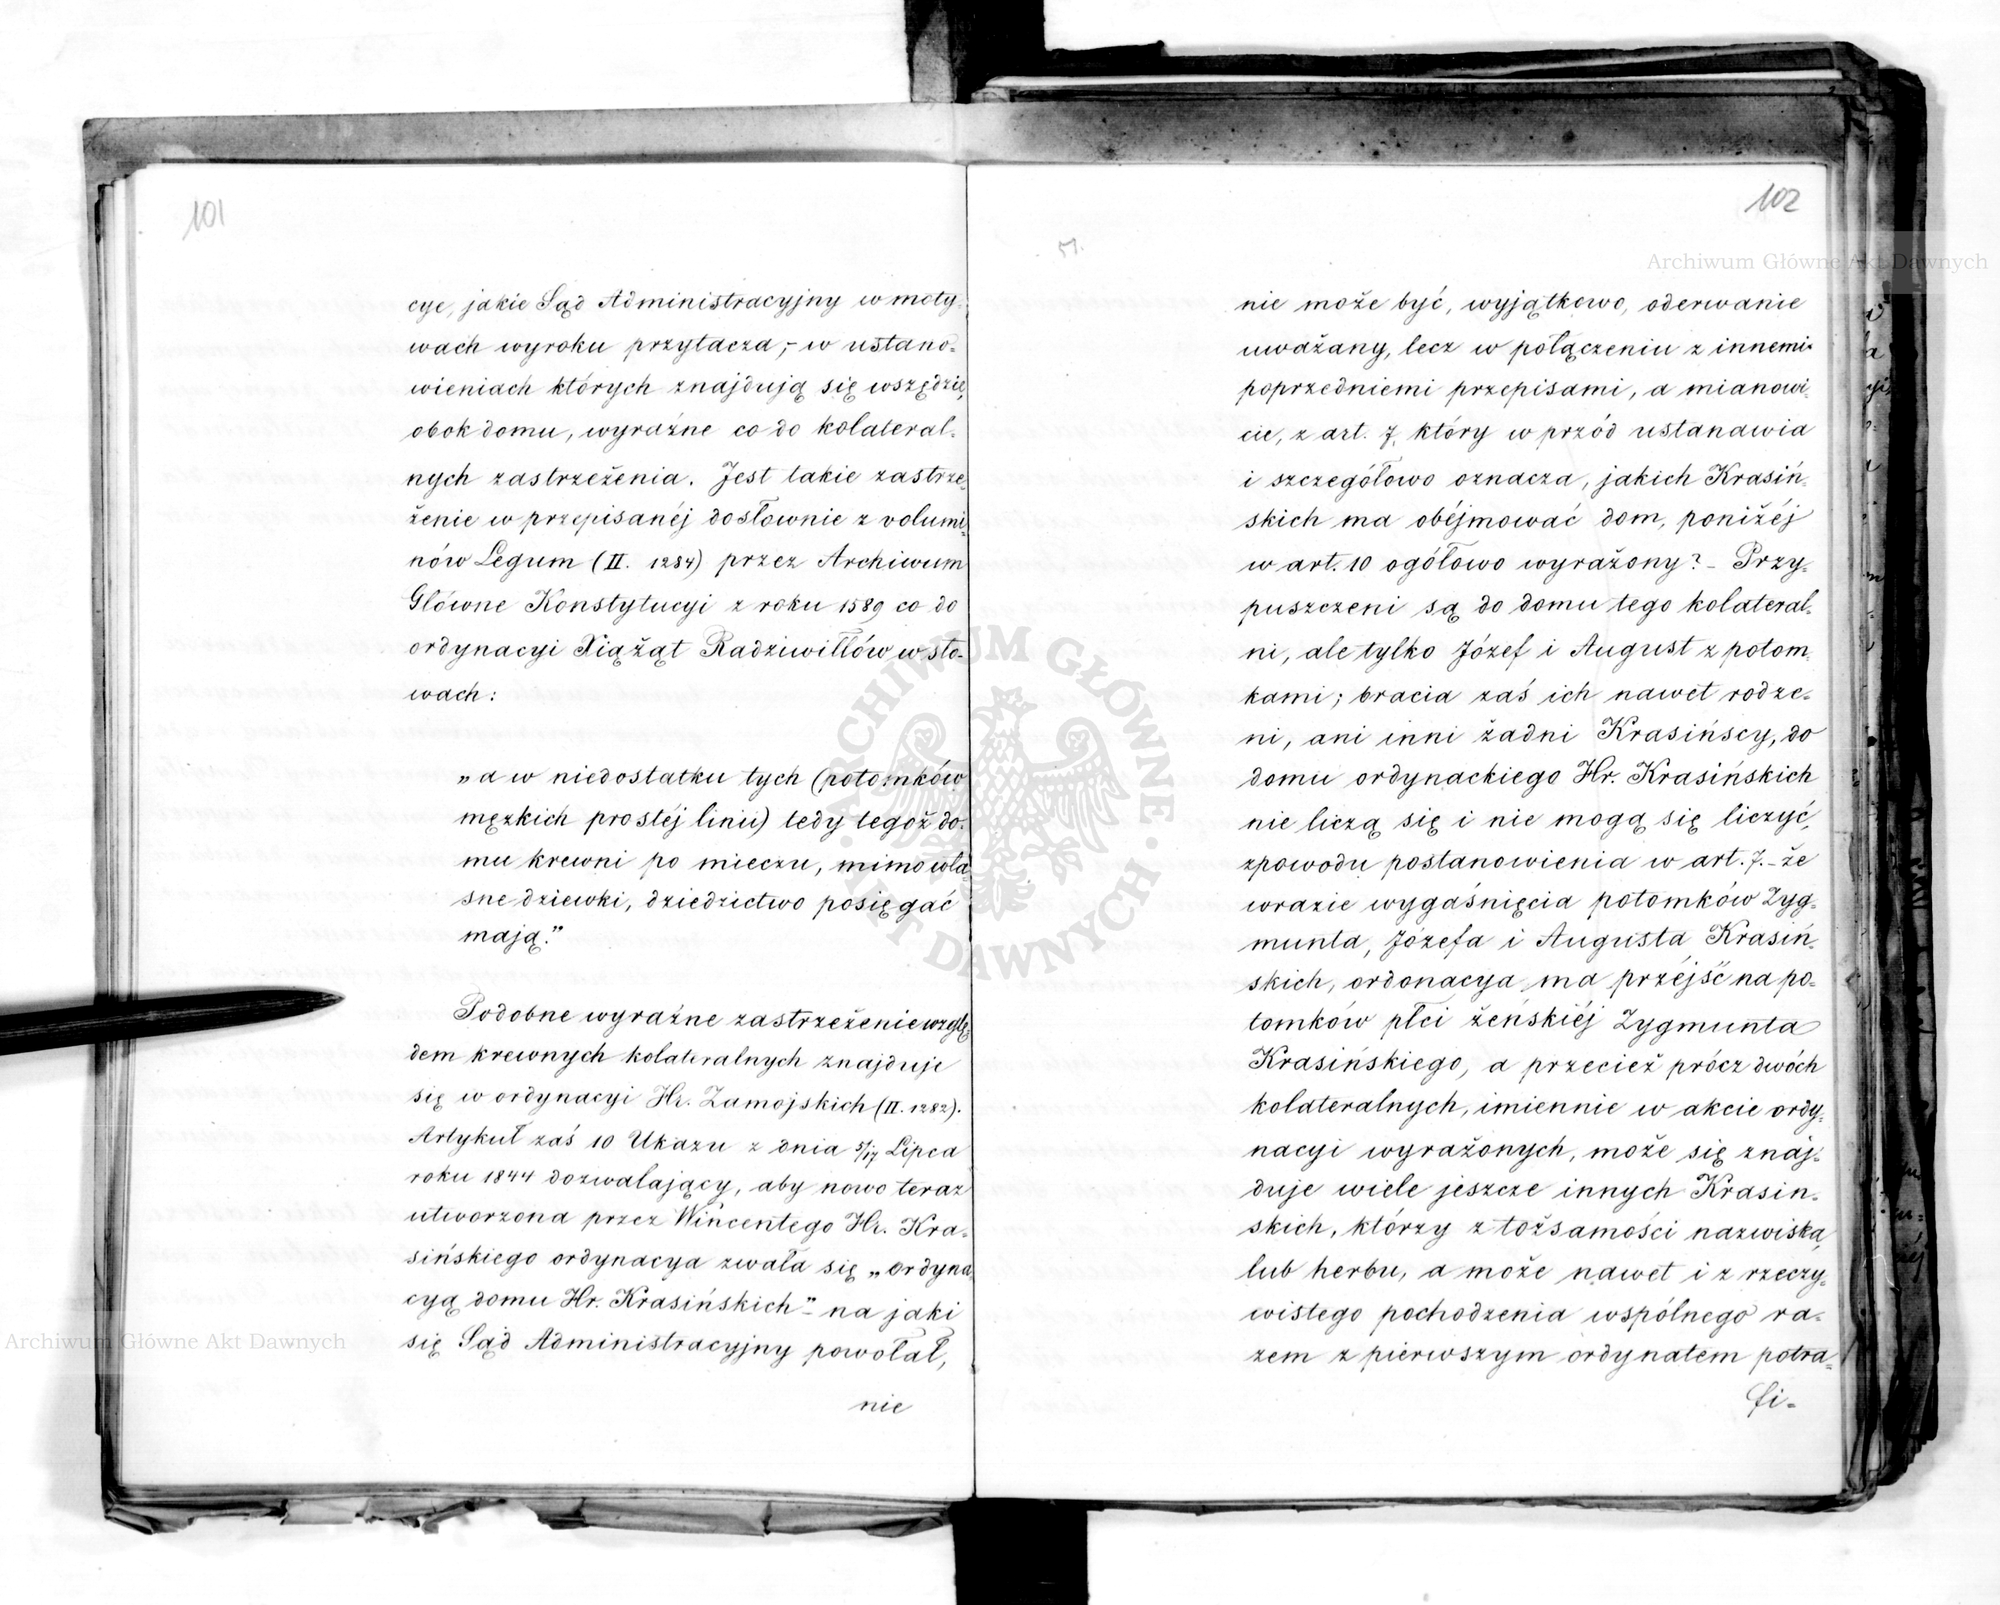 101
cye, jakie Sąd Administracyjny w moty-
wach wyroku przytacza,- w ustano-
wieniach których znajdują się wszędzie,
obok domu, wyraźne co do kolateral-
nych zastrzeżenia. Jest takie zastrze-
żenie w przepisanéj dosłownie z volumi-
nów Legum (II. 1284) przez Archiwum
Główne Konstytucyi z roku 1589 co do
ordynacyi Xiążąt Radziwiłłów w sło-
wach:
„a w niedostatku tych (potomków
męzkich prostéj linii) tedy tegoż do-
mu krewni po mieczu, mimo wła-
sne dziewki, dziedzictwo posięgać
mają."
Podobne wyraźne zastrzeżenie wzglę-
dem krewnych kolateralnych znajduje
się w ordynacyi Hr. Zamojskich (II. 1282).
Artykuł zaś 10 Ukazu z dnia 5/17 Lipca
roku 1844 dozwalający, aby nowo teraz
utworzona przez Wincentego Hr. Kra-
sińskiego ordynacya zwała się „ordyna-
cyą domu Hr. Krasińskich"- na jaki
się Sąd Administracyjny powołał,
nie
102
51.
nie może być, wyjątkowo, oderwanie
uważany, lecz w połączeniu z innemi
poprzedniemi przepisami, a mianowi-
cie, z art. 7, który w przód ustanawia
i szczegółowo oznacza, jakich Krasiń-
skich ma obéjmować dom, poniżéj
w art. 10 ogółowo wyrażony? - Przy-
puszczeni są do domu tego kolateral-
ni, ale tylko Józef i August z potom-
kami; bracia zaś ich nawet rodze-
ni, ani inni żadni Krasińscy, do
domu ordynackiego Hr. Krasińskich
nie liczą się i nie mogą się liczyć,
z powodu postanowienia w art. 7.- że
wrazie wygaśnięcia potomków Zyg-
munta, Józefa i Augusta Krasiń-
skich, ordonacya ma przéjść na po-
tomków płci żeńskiéj Zygmunta
Krasińskiego, a przecież prócz dwóch
kolateralnych, imiennie w akcie ordy-
nacyi wyrażonych, może się znaj-
duje wiele jeszcze innych Krasin-
skich, którzy z tożsamości nazwiska,
lub herbu, a może nawet i z rzeczy-
wistego pochodzenia wspólnego ra-
zem z pierwszym ordynatem potra-
fi-
Archiwum Główne Akt Dawnych
Archiwum Główne Akt Dawnych
ARCHIWUM GŁÓWNE · AKT DAWNYCH ·